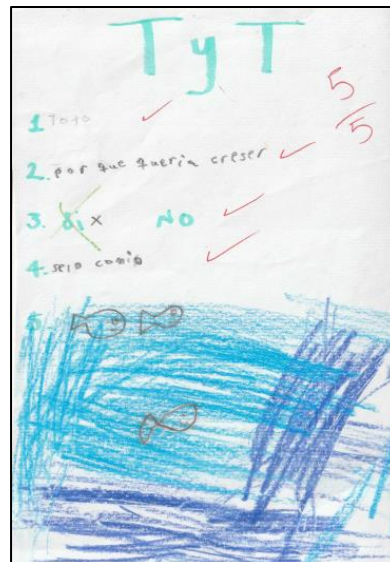 TyT
5/5
1 Toto
2. por que queria creser
3. Si x NO
4. selo comio
5.